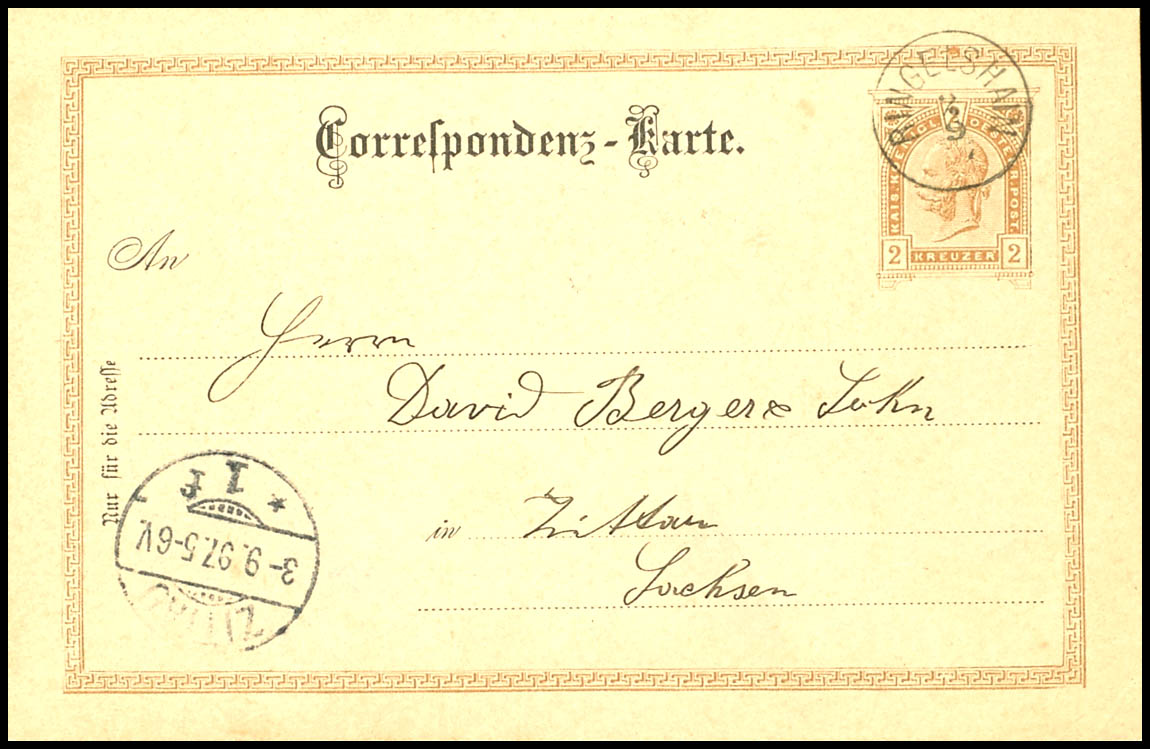 RINGELSHAIN
2/9
KAIS. KOENIGL. OESTERR. POST.
2 KREUZER 2
Correſpondenz-Karte.
An
Herrn
David Berger & Sohn
in Zittau
Sachsen
Nur für die Adreſſe
ZITTAU
3-9.97.5-6V.
* I